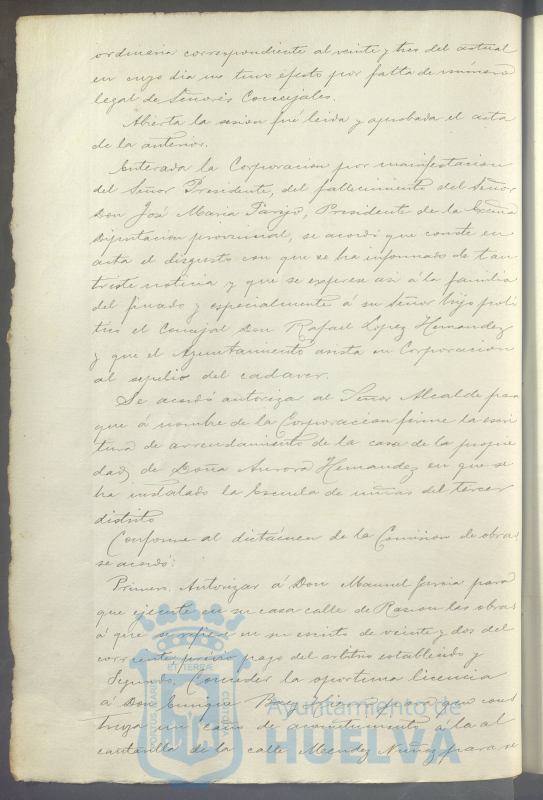 ordinaria correspondiente al veinte y tres del actual
en cuyo dia no tuvo efecto por falta de número
legal de Señores Concejales.
Abierta la sesion fué leida y aprobada el acta
de la anterior.
Enterada la Corporacion por manifestacion
del Señor Presidente, del fallecimiento del Señor
Don José Maria Parejo, Presidente de la Excma
Diputacion provincial, se acordó que conste en
acta el disgusto con que se ha informado de tan
triste noticia y que se exprese asi á la familia
del finado y especialmente á su Señor hijo poli
tico el Concejal Don Rafael Lopez Hernandez
y que el Ayuntamiento asista en Corporacion
al sepelio del cadaver.
Se acordó autorizar al Señor Alcalde para
que á nombre de la Corporacion firme la escri
tura de arrendamiento de la casa de la propie
dad de Doña Aurora Hernandez en que se
ha instalado la Escuela de niñas del tercer
distrito
Conforme al dictámen de la Comision de obras
se acordó:
Primero, Autorizar á Don Manuel Garcia para
que ejecute en su casa calle de Rascon las obras
á que se refiere en su escrito de veinte y dos del
corriente previo pago del arbitrio establecido y
Segundo, Conceder la oportuna licencia
á Don Enrique para que cons
truya un caño de acometimiento á la al
cantarilla de la calle Mendez Nuñez para se
Ayuntamiento de
HUELVA